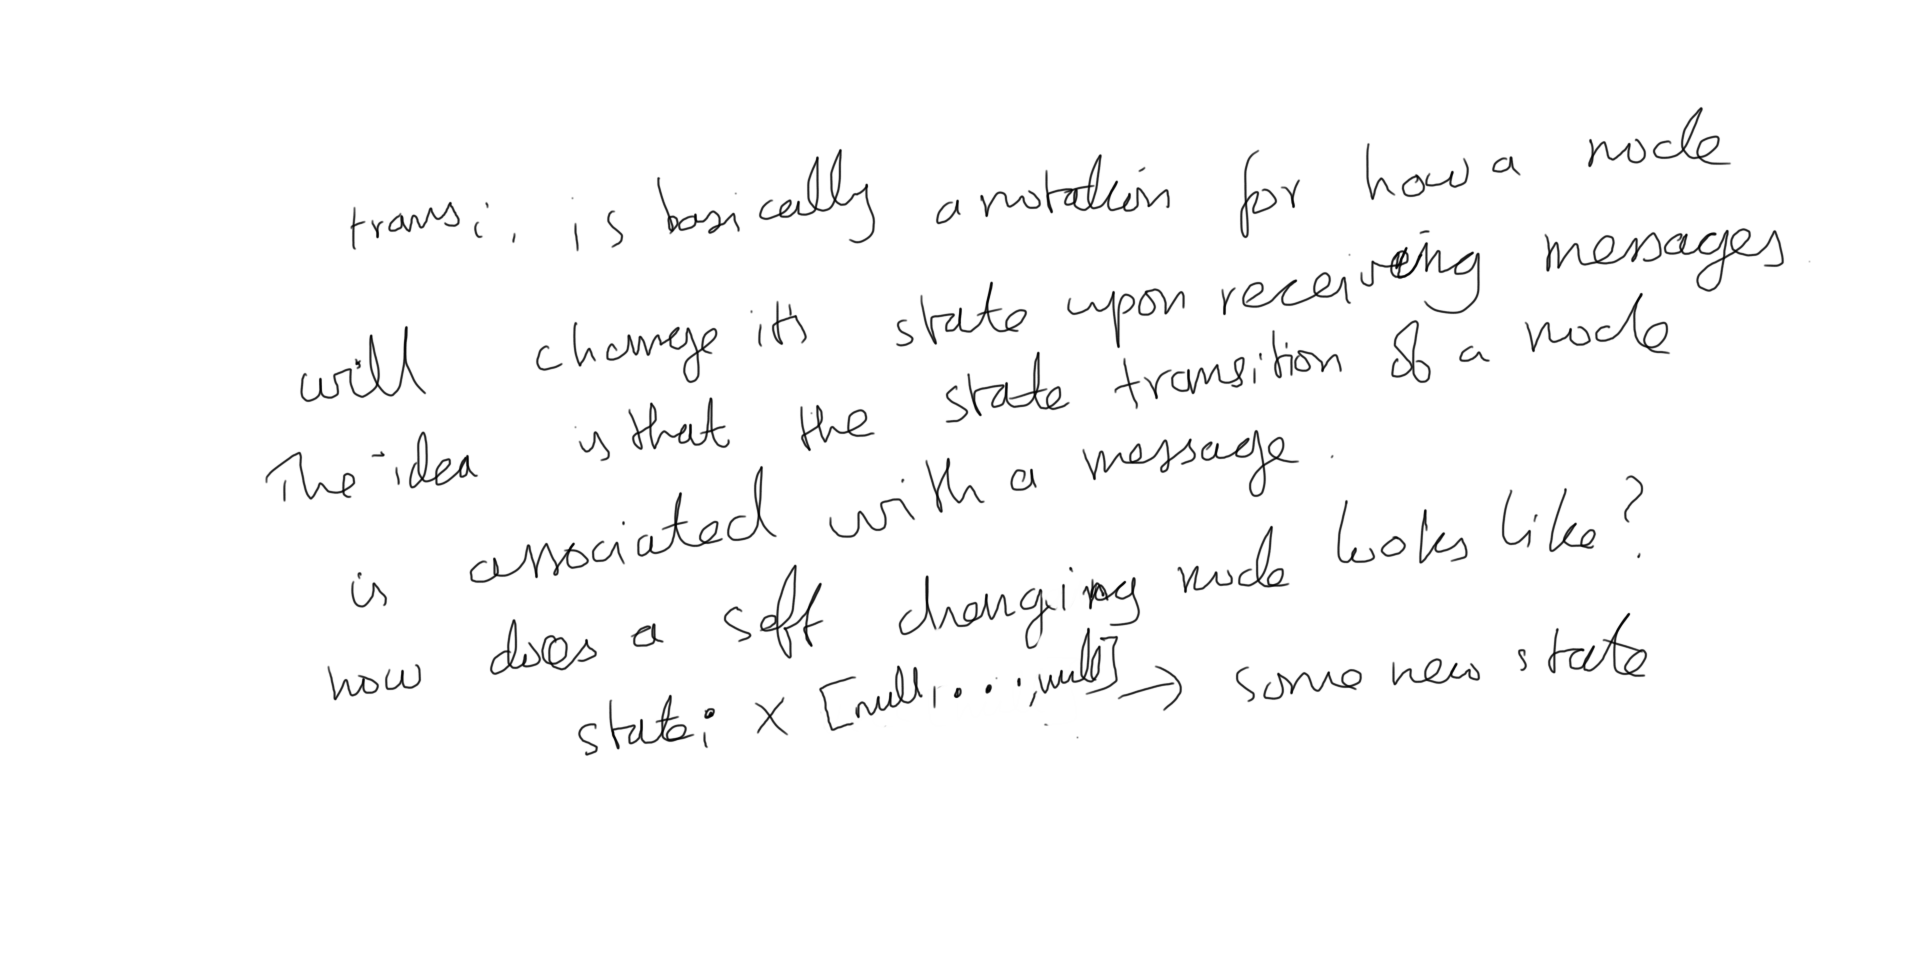 transᵢ, is basically a notation for how a node
will change its state upon receiving messages
The idea is that the state transition of a node
is associated with a message.
how does a self changing node looks like?
stateᵢ × [null, ..., null] → some new state